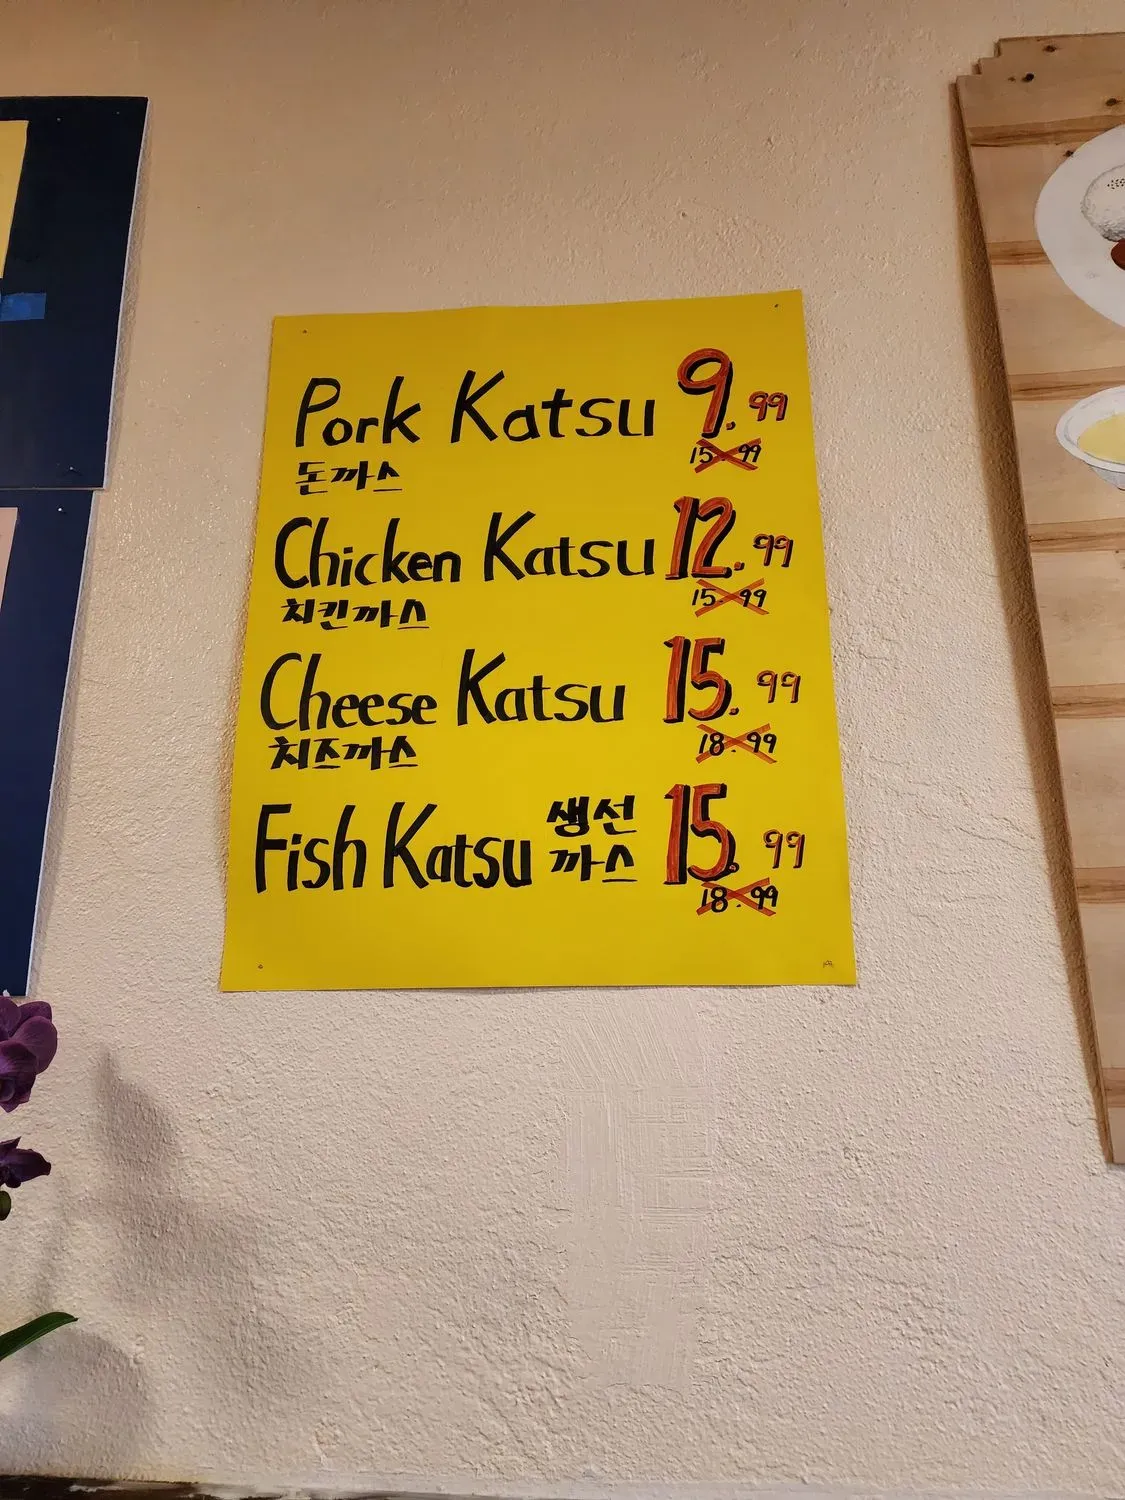 Pork Katsu 9.99
돈까스 15.99
Chicken Katsu 12.99
치킨까스 15.99
Cheese Katsu 15.99
치즈까스 18.99
Fish Katsu 생선 까스 15.99
18.99